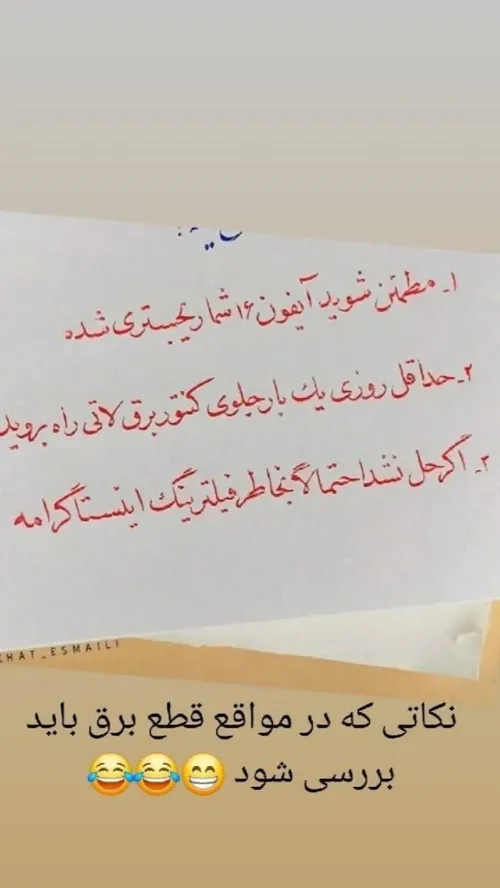 ۱ـ مطمئن شوید آیفون ۱۶ شما ریجیستری شده
۲ـ حداقل روزی یک بار جلوی کنتور برق لاتی راه بروید
۳ـ اگر حل نشد احتمالاً بخاطر فیلترینگ اینستاگرامه
KHAT_ESMAILI
نکاتی که در مواقع قطع برق باید
بررسی شود 😁😂😂